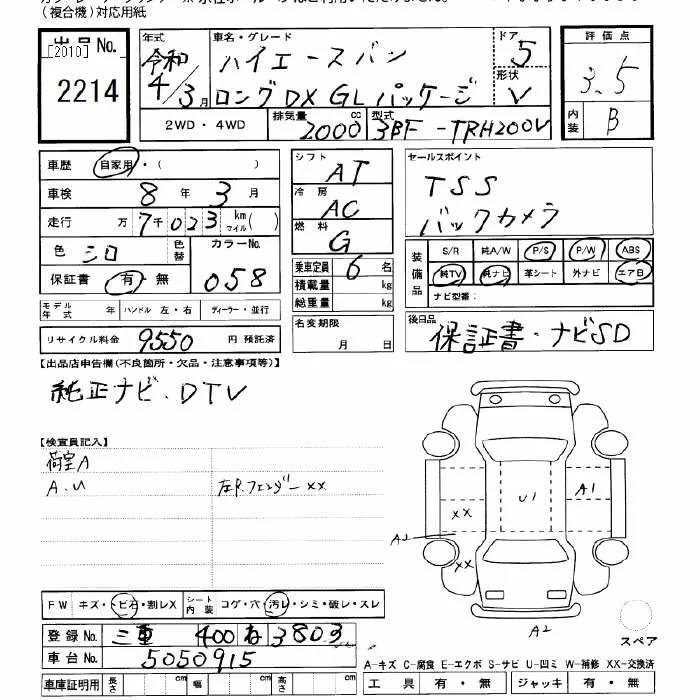 (複合機)対応用紙
出品 No. [2010] 2214
年式 令和 4/3 月
車名・グレード ハイエースバン
ロングDX GLパッケージ
ドア 5
形状 V
評価点 3.5
内装 B
2WD・4WD 排気量 2000 cc 型式 3BF-TRH200V
車歴 自家用・( )
車検 8 年 3 月
走行 万 7千023 km マイル( )
色 シロ 色替 カラーNo. 058
保証書 有・無
モデル年式 ハンドル 左・右 ディーラー・並行
リサイクル料金 9550 円 預託済
シフト AT
冷房 AC
燃料 G
乗車定員 6 名
積載量 kg
総重量 kg
名変期限 月 日
セールスポイント
TSS
バックカメラ
装備品 S/R 純A/W P/S P/W ABS
純TV 純ナビ 革シート 外ナビ エアB
ナビ型番:
後日品 保証書・ナビSD
【出品店申告欄(不良箇所・欠品・注意事項等)】
純正ナビ・DTV
【検査員記入】
荷室A
A.U 左R.フェンダーXX
U1 A1
XX
A2
XX
A2
スペア
FW キズ・トビ石・割レX シート内装 コゲ・穴・汚レ・シミ・破レ・スレ
登録No. 三重 400 な 3803
車台No. 5050915
A-キズ C-腐食 E-エクボ S-サビ U-凹ミ W-補修 XX-交換済
車庫証明用 長さ cm 幅 cm 高さ cm
工具 有・無 ジャッキ 有・無